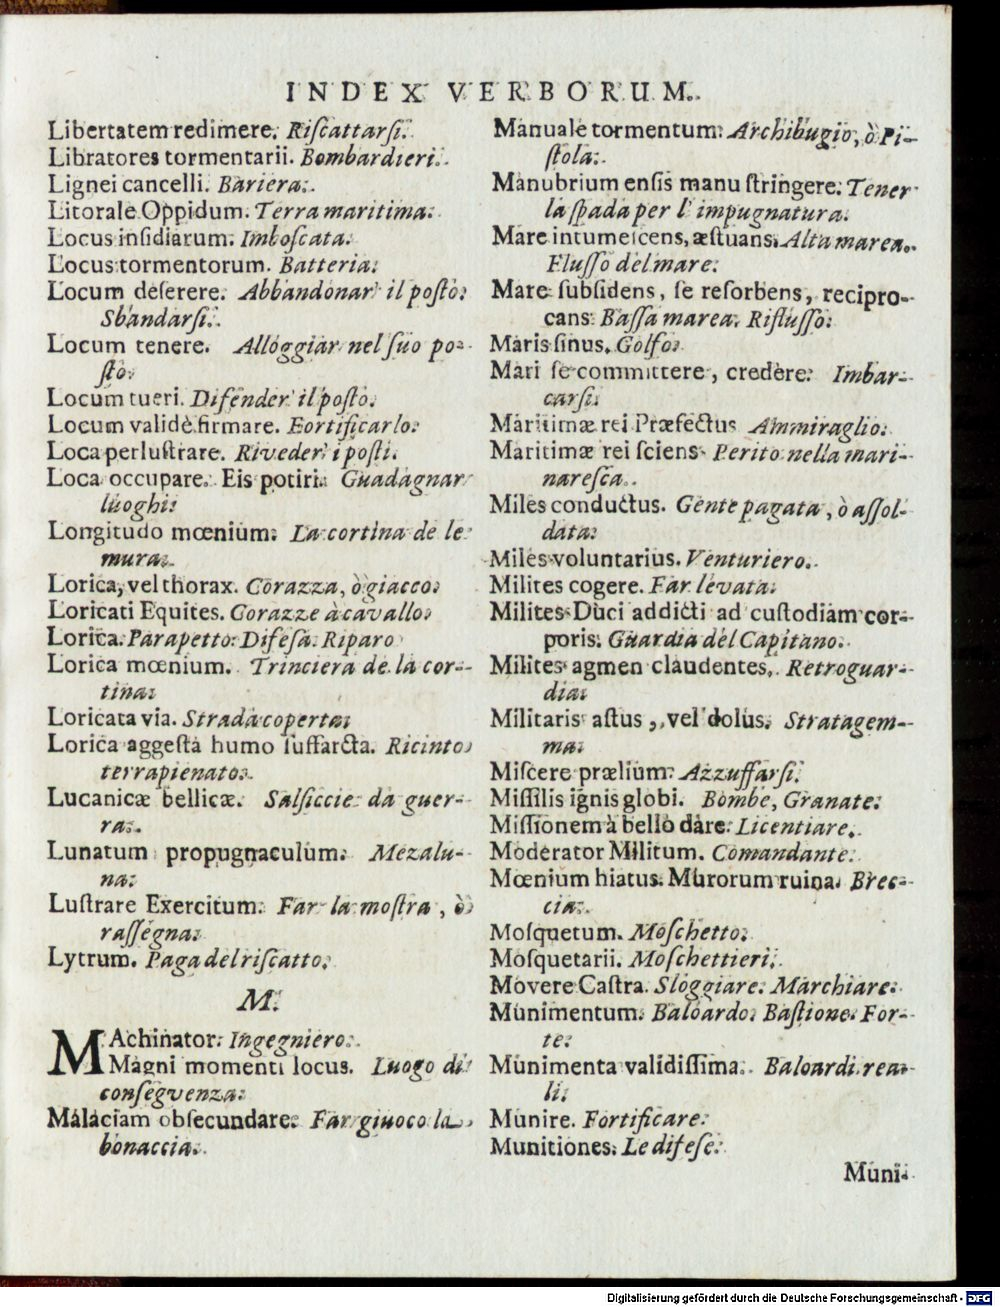 INDEX VERBORUM.
Libertatem redimere. Riſcattarſi.
Libratores tormentarii. Bombardieri.
Lignei cancelli. Bariera.
Litorale Oppidum. Terra maritima.
Locus inſidiarum. Imboſcata.
Locus tormentorum. Batteria.
Locum deſerere. Abbandonar' il poſto.
Sbandarſi.
Locum tenere. Alloggiar nel ſuo po-
ſto.
Locum tueri. Difender' il poſto.
Locum validè firmare. Fortificarlo.
Loca perluſtrare. Riveder' i poſti.
Loca occupare. Eis potiri. Guadagnar
luoghi.
Longitudo mœnium. La cortina de le
mura.
Lorica, vel thorax. Corazza, ò giacco.
Loricati Equites. Corazze à cavallo.
Lorica. Parapetto. Difeſa. Riparo
Lorica mœnium. Trinciera de la cor-
tina.
Loricata via. Strada coperta.
Lorica aggeſta humo ſuffarcta. Ricinto
terrapienato.
Lucanicæ bellicæ. Salſiccie da guer-
ra.
Lunatum propugnaculum. Mezalu-
na.
Luſtrare Exercitum. Far la moſtra, ò
raſſegna.
Lytrum. Paga del riſcatto.
M.
MAchinator. Ingegniero.
Magni momenti locus. Luogo di
conſegvenza.
Malaciam obſecundare. Far giuoco la
bonaccia.
Manuale tormentum. Archibugio, ò Pi-
ſtola.
Manubrium enſis manu ſtringere. Tener
la ſpada per l' impugnatura.
Mare intumeſcens, æſtuans. Alta marea.
Fluſſo del mare.
Mare ſubſidens, ſe reſorbens, recipro-
cans. Baſſa marea. Rifluſſo.
Maris ſinus. Golfo.
Mari ſe committere, credere. Imbar-
carſi.
Maritimæ rei Præfectus Ammiraglio.
Maritimæ rei ſciens. Perito nella mari-
nareſca.
Miles conductus. Gente pagata, ò aſſol-
data.
Miles voluntarius. Venturiero.
Milites cogere. Far levata.
Milites Duci addicti ad cuſtodiam cor-
poris. Guardia del Capitano.
Milites agmen claudentes. Retroguar-
dia.
Militaris aſtus, vel dolus. Stratagem-
ma.
Miſcere prælium. Azzuffarſi.
Miſſilis ignis globi. Bombe, Granate.
Miſſionem à bello dare. Licentiare.
Moderator Militum. Comandante.
Mœnium hiatus. Murorum ruina. Brec-
cia.
Moſquetum. Moſchetto.
Moſquetarii. Moſchettieri.
Movere Caſtra. Sloggiare. Marchiare.
Munimentum. Baloardo. Baſtione. For-
te.
Munimenta validiſſima. Baloardi rea-
li.
Munire. Fortificare.
Munitiones. Le difeſe.
Muni-
Digitalisierung gefördert durch die Deutsche Forschungsgemeinschaft - DFG